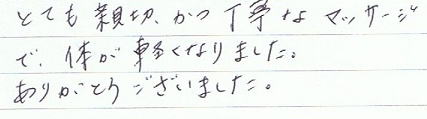 とても親切、かつ丁寧なマッサージ
で、体が軽くなりました。
ありがとうございました。